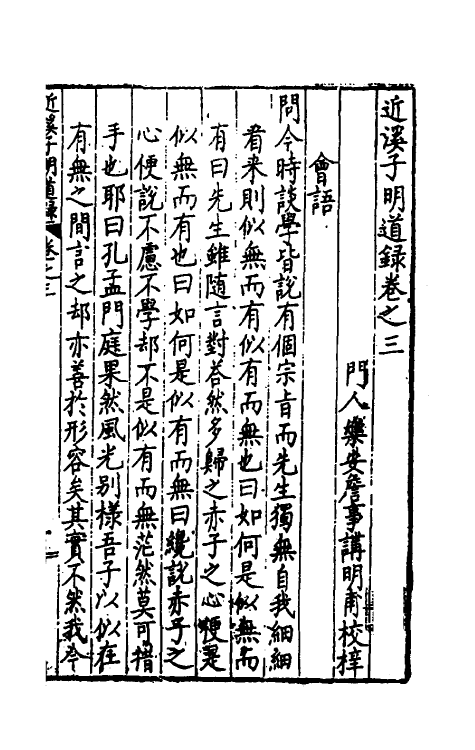 近溪子明道録卷之三
門人樂安詹事講明甫校梓
會語
問今時談學皆說有個宗旨而先生獨無自我細細
看来則似無而有似有而無也曰如何是似無而
有曰先生雖随言對荅然多歸之赤子之心便是
似無而有也曰如何是似有而無曰纔說赤子之
心便說不慮不學却不是似有而無茫然莫可措
手也耶曰孔孟門庭果然風光别樣吾子以似在
有無之間言之却亦善於形容矣其實不然我今
近溪子明道録 卷之三